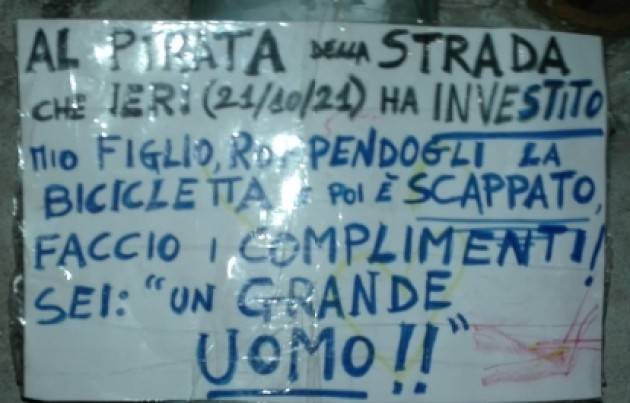 AL PIRATA DELLA STRADA
CHE IERI (21/10/21) HA INVESTITO
MIO FIGLIO, ROMPENDOGLI LA
BICICLETTA E POI È SCAPPATO,
FACCIO I COMPLIMENTI!
SEI: "UN GRANDE
UOMO!!"